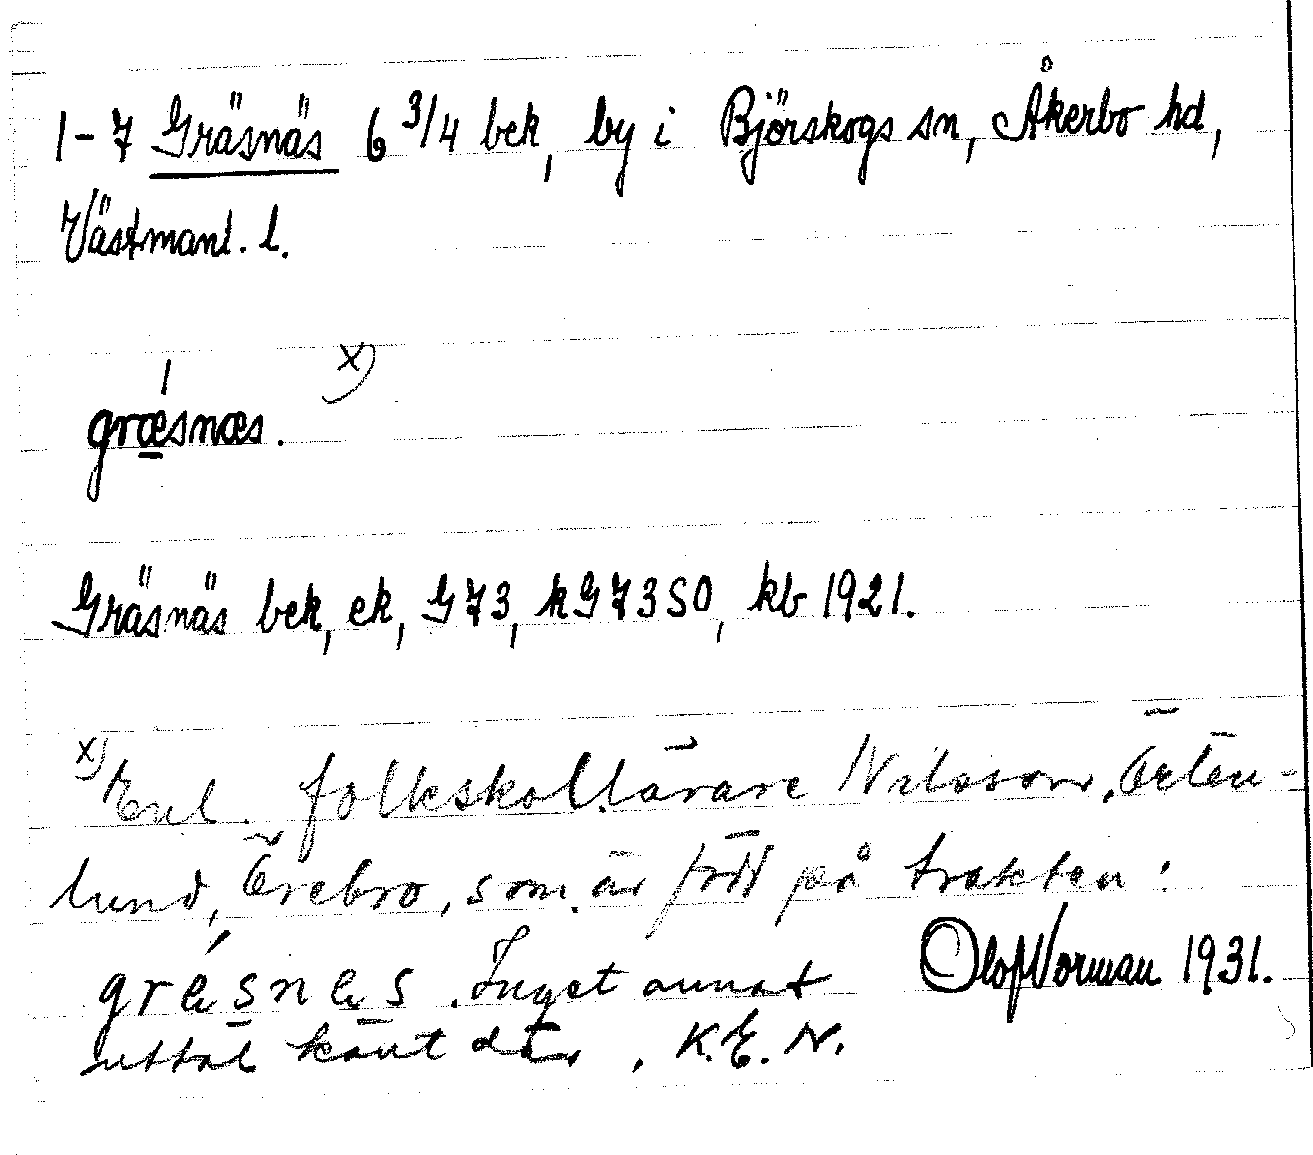 1-7 Gräsnäs 6 3/4 bek, by i Björskogs sn, Åkerbo hd,
Västmanl. l.
x)
grǽ̱snæs.
Gräsnäs bek, ek, G73, kG73SO, kb 1921.
x) Enl. folkskollärare Nilsson, Örten-
lund, Örebro, som är född på trakten:
grǽs̱næ̱s. Inget annat
uttal känt där. K.E.N.
Olof Norman 1931.